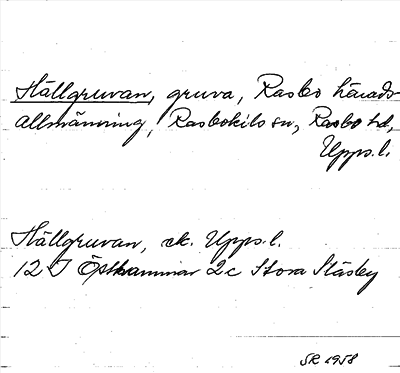 Hällgruvan, gruva, Rasbo härads-
allmänning, Rasbokils sn, Rasbo hd,
Upps. l.
Hällgruvan, ek. Upps. l.
12 I Östhammar 2c Stora Stäsby
SR 1958